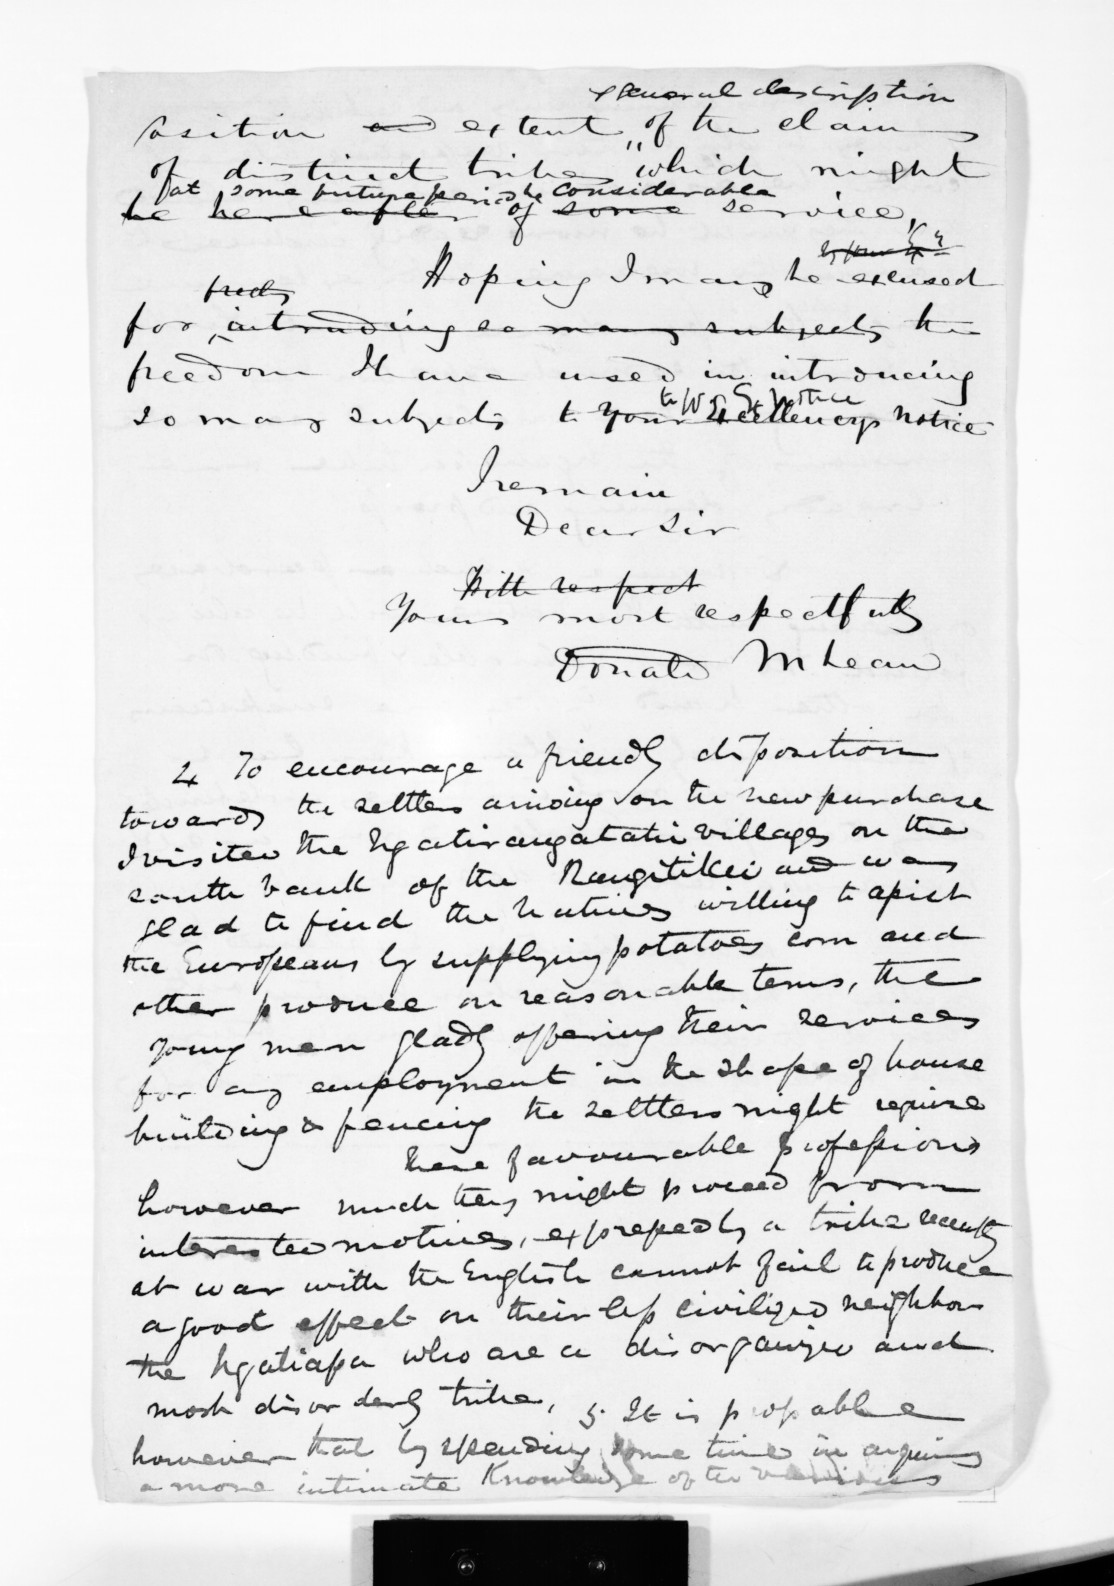 & general description
position and extent of the claims
of distinct tribes which might
at some future period be considerable
be hereafter of some service,
Hoping I may be excused
for intruding so many subjects the
freedom I have used in introducing
to Yr Ex notice
so many subjects to Your Excellencys notice
I remain
Dear Sir
With respect
Yours most respectfully
Donald McLean
4 To encourage a friendly disposition
towards the settlers arriving on the new purchase
I visited the Ngatirangatahi villages on the
south bank of the Rangitikei and was
glad to find the Natives willing to assist
the Europeans by supplying potatoes corn and
other produce on reasonable terms, the
young men gladly offering their services
for any employment in the shape of house
building & fencing the settlers might require
These favourable professions
however much they might proceed from
interested motives, expressed by a tribe recently
at war with the English cannot fail to produce
a good effect on their less civilized neighbours
the Ngatiapa who are a disorganized and
most disorderly tribe, 5. It is probable
however that by spending some time in acquiring
a more intimate Knowledge of the various